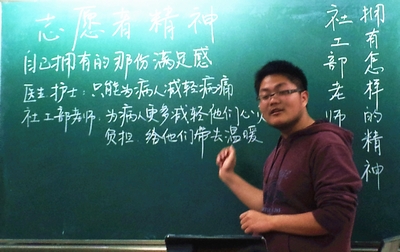 志愿者精神
自己拥有的那份满足感
医生护士：只能为病人减轻病痛
社工部老师：为病人更多减轻他们心
负担，给他们带去温暖
拥有怎样的精神
社工部老师